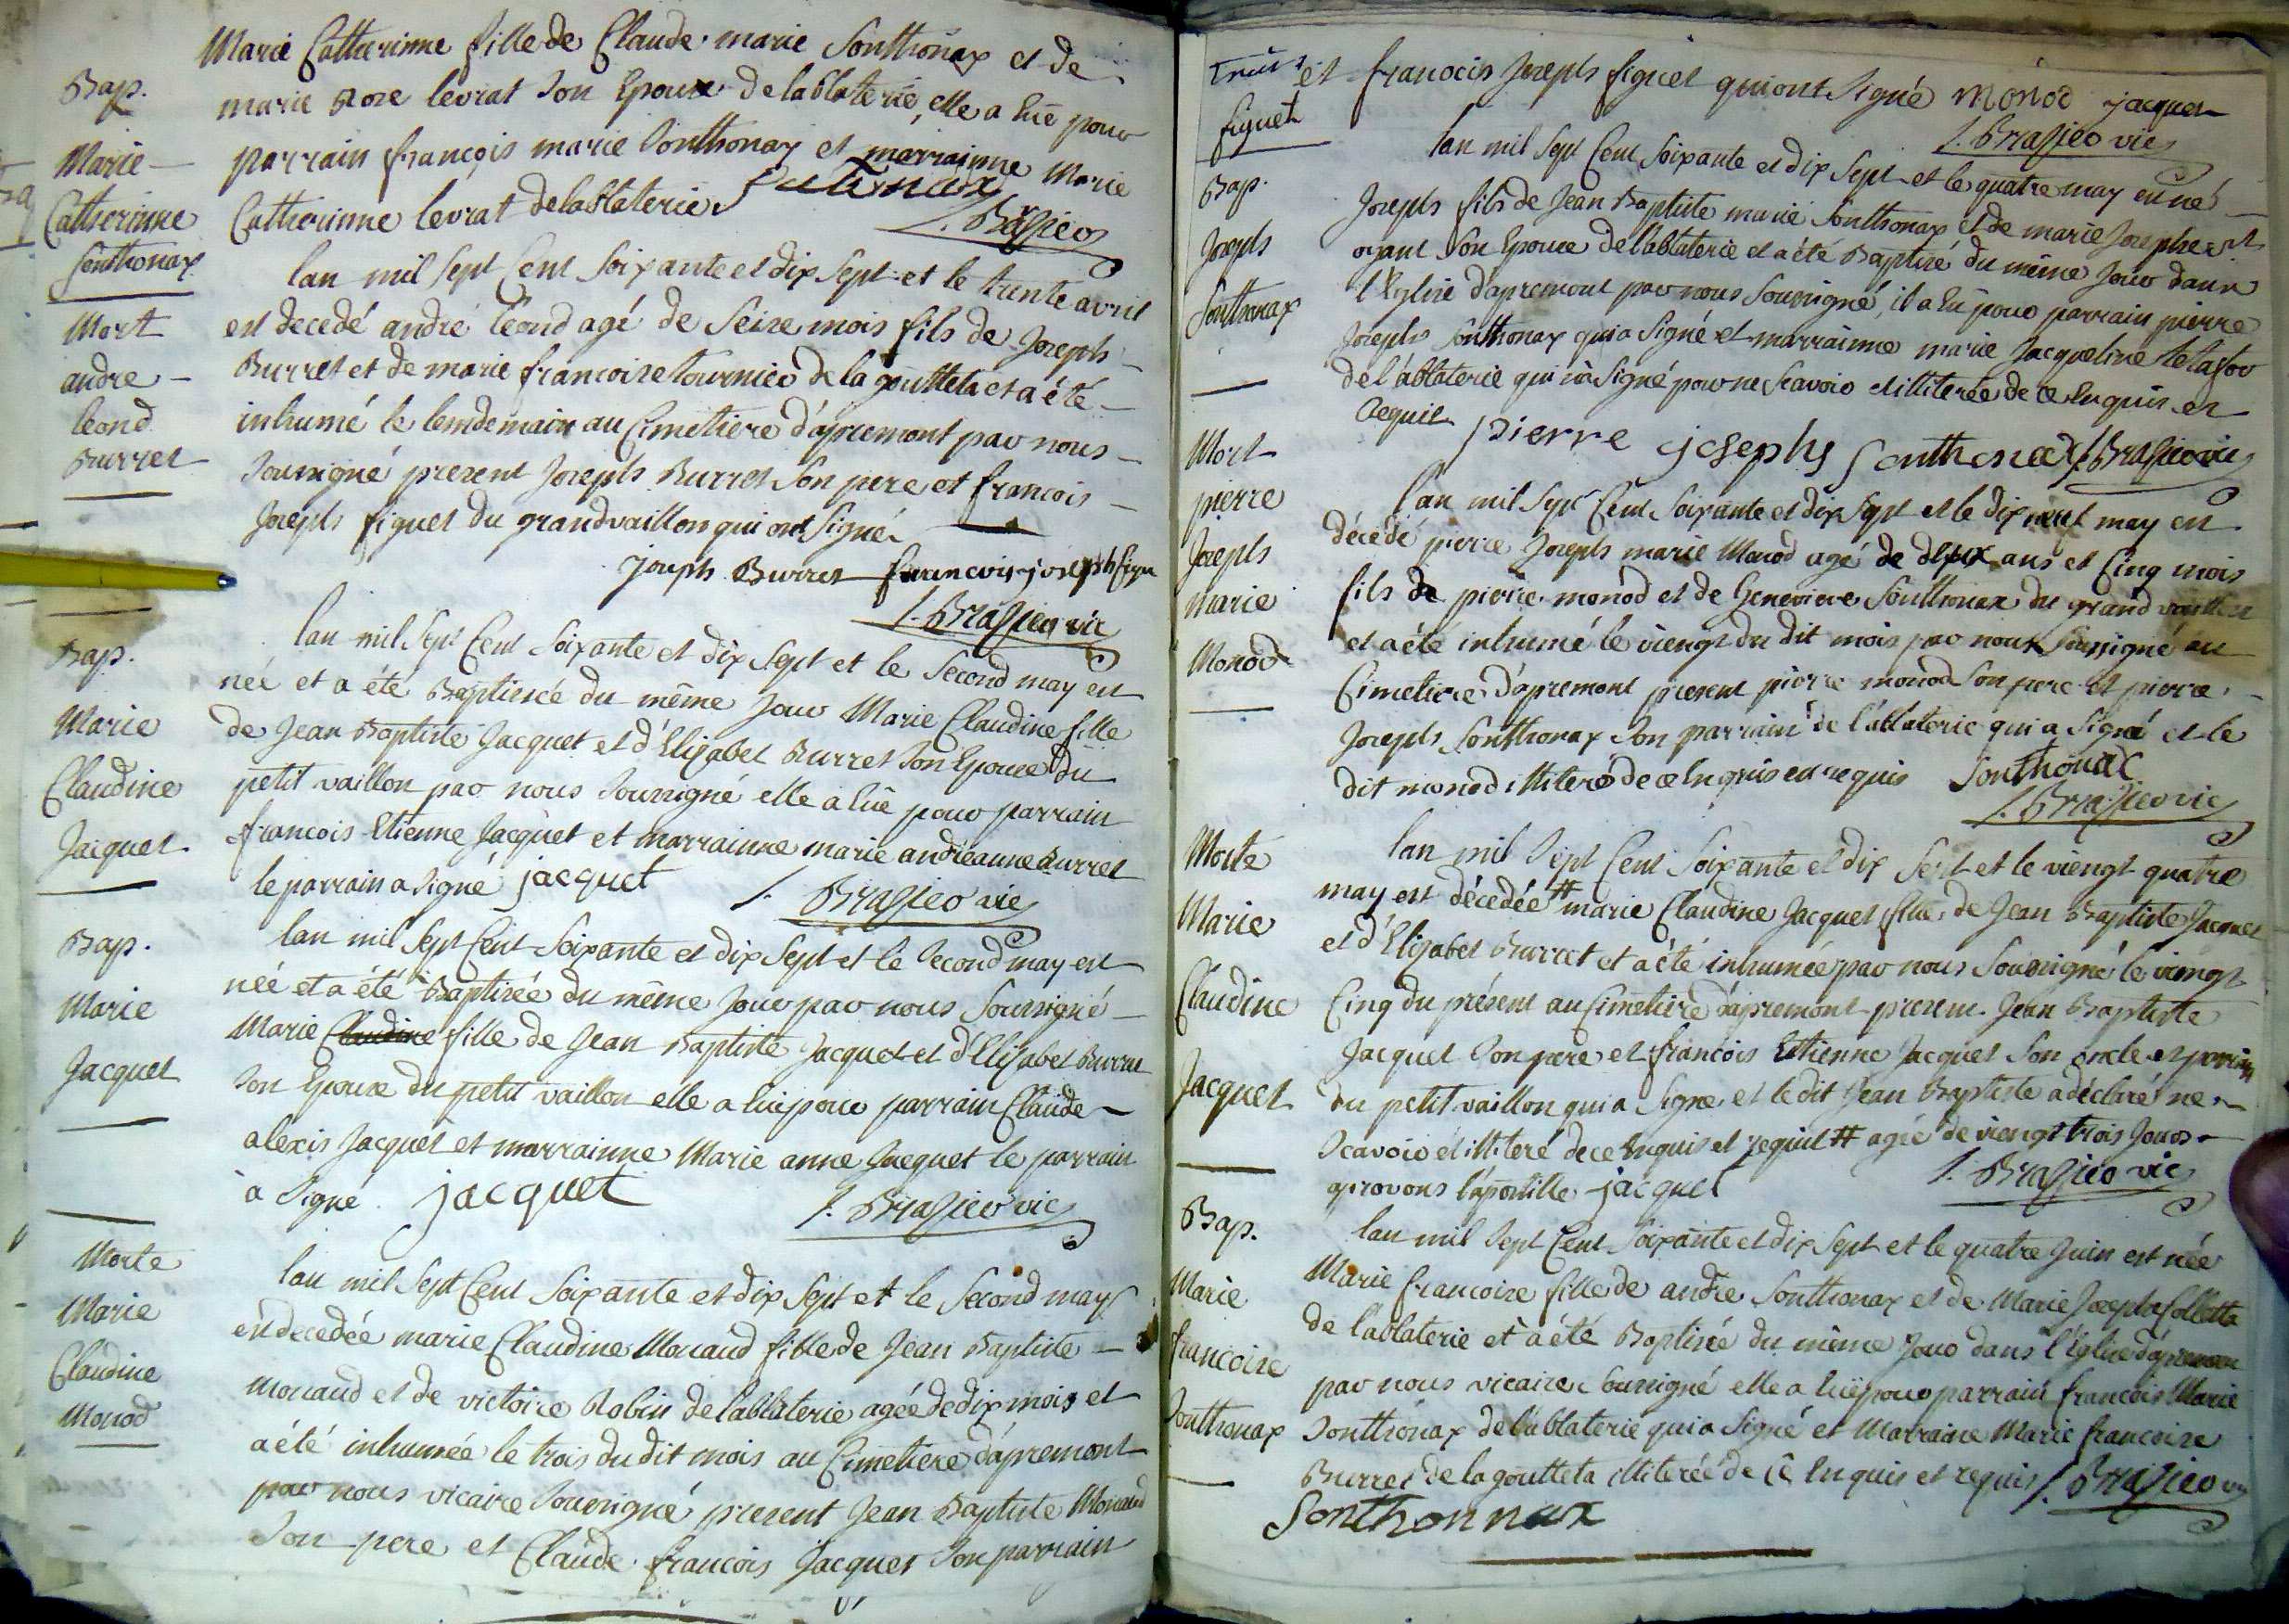 Marie Catherinne fille de Claude marie Sonthonax et de
Bap.
marie Rose levrat Son Epouse de lablaterie, elle a hüe pour
Marie
parrain françois marie Sonthonax et marrainne Marie
Catherinne
Catherinne levrat delablaterie
Sonthonax
lan mil Sept Cent Soixante et dix Sept et le trente avril
Mort
est decedé andré léond agé de Seise mois fils de Joseph
andre
Burret et de marie francoise tournier de la goutteta et a été
leond
inhumé le lendemain au Cimetiere d'apremont par nous
Burret
Soussigné present Joseph Burret Son pere et francois
Joseph figuet du grandvaillon qui ont Signé
joseph Burret francois joseph figu
J. Brasier vic
Bap.
lan mil Sept Cent Soixante et dix Sept et le Second may est
née et a été Baptiseé du même Jour Marie Claudine fille
Marie
de Jean Baptiste Jacquet et d'Elizabet Burret Son Epouse du
Claudine
petit vaillon par nous Soussigné elle a hüe pour parrain
Jacquet
francois Etienne Jacquet et marrainne marie andreanne Burret
le parrain a Signé jacquet
J. Brasier vic
Bap.
lan mil Sept Cent Soixante et dix Sept et le Second may est
née et a été Baptisée du même Jour par nous Soussigné
Marie
Marie Claudine fille de Jean Baptiste Jacquet et d'Elizabet Burret
Jacquet
Son Epouse du petit vaillon elle a hüe pour parrain Claude
alexis Jacquet et marrainne Marie anne Jacquet le parrain
a Signé. jacquet
J. Brasier vic
Morte
lan mil Sept Cent Soixante et dix Sept et le Second may
Marie
est decedée marie Claudine Monaud fille de Jean Baptiste
Claudine
Monaud et de victoire Robin de lablaterie agée de dix mois et
Monod
a été inhumée le trois du dit mois au Cimetiere d'apremont
par nous vicaire Soussigné present Jean Baptiste Monaud
Son pere et Claude francois Jacquet Son parrain
et francois Joseph figuet qui ont Signé monod jacquet
figuet
J. Brasier vic
lan mil Sept Cent Soixante et dix Sept et le quatre may est né
Bap.
Joseph fils de Jean Baptiste marie Sonthonax et de marie Josephe
Joseph
Son Epouse de lablaterie et a été Baptisé du même Jour dans
Sonthonax
l'Eglise dapremont par nous Soussigné, il a hü pour parrain pierre
Joseph Sonthonax qui a Signé et marrainne marie Jacqueline
de l'ablaterie qui n'a Signé pour ne Scavoir et illiterée de ce Enquise et
Requise
pierre joseph Sonthonax J. Brasier vic
Mort
lan mil Sept Cent Soixante et dix Sept et le dix neuf may est
pierre
décédé pierre Joseph marie Monod agé de deux ans et Cinq mois
Joseph
fils de pierre monod et de Genevieve Sonthonax du grand vaillon
marie
et a été inhumé le viengt du dit mois par nous Soussigné au
Monod
Cimetiere d'apremont present pierre monod Son pere et pierre
Joseph Sonthonax Son parrain de l'ablaterie qui a Signé et le
dit monod illiteré de ce Enquis et requis Sonthonax
J. Brasier vic
Morte
lan mil Sept Cent Soixante et dix Sept et le viengt quatre
may est décedée # marie Claudine Jacquet fille de Jean Baptiste Jacquet
Marie
et d'Elizabet Burret et a été inhumée par nous Soussigné le viengt
Claudine
Cinq du présent au Cimetiere d'apremont present Jean Baptiste
Jacquet Son pere et francois Etienne Jacquet Son oncle et parrain
Jacquet
du petit vaillon qui a Signé, et le dit Jean Baptiste a déclaré ne
Scavoir et illiteré de ce Enquis et requis # agée de viengt trois Jours
aprovons l'apostille jacquet
J. Brasier vic
Bap.
lan mil Sept Cent Soixante et dix Sept et le quatre Juin est née
Marie
Marie francoise fille de andre Sonthonax et de Marie Josephe Colletta
de lablaterie et a été Baptisée du même Jour dans l'Eglise d'apremon
francoise
par nous vicaire Soussigné elle a hüe pour parrain francois Marie
Sonthonax
Sonthonax de lablaterie qui a Signé et Marraine Marie francoise
Burret de la goutteta illiterée de ce Enquis et requis J. Brasier vic
Sonthonnax